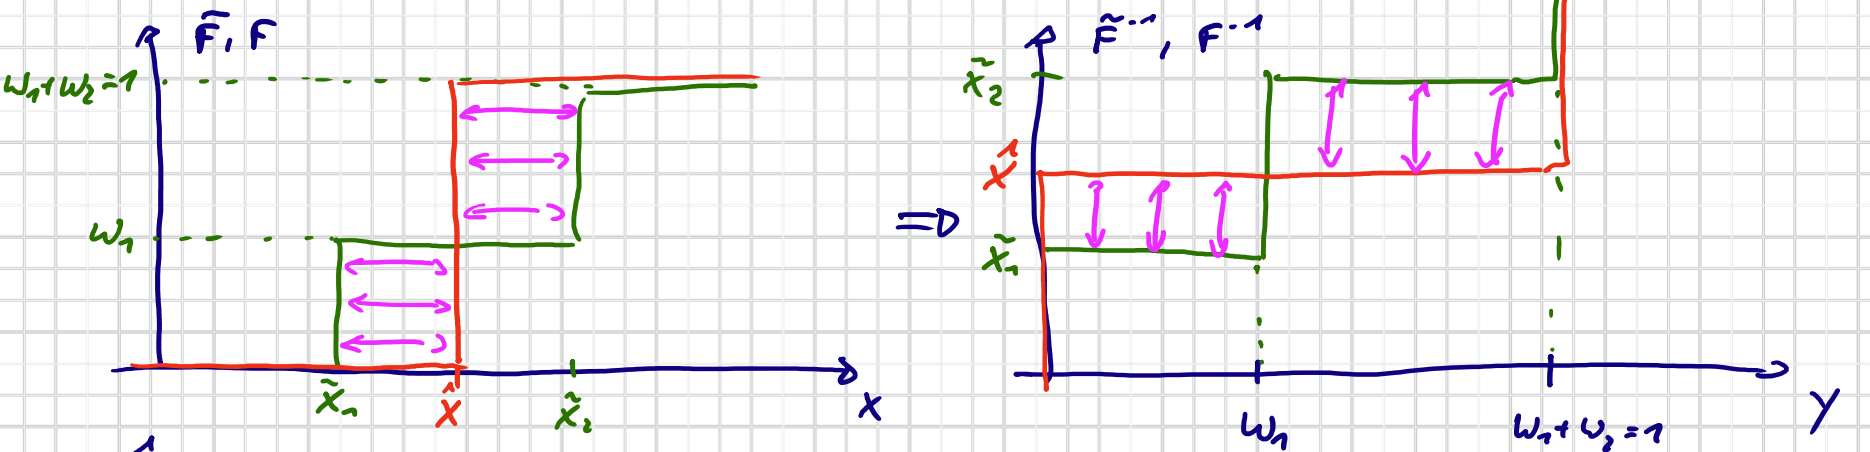 F̃, F
w₁+w₂=1
w₁
x̃₁
x̂
x̃₂
x
⇒
F̃⁻¹, F⁻¹
x̃₂
x̂
x̃₁
w₁
w₁+w₂=1
y